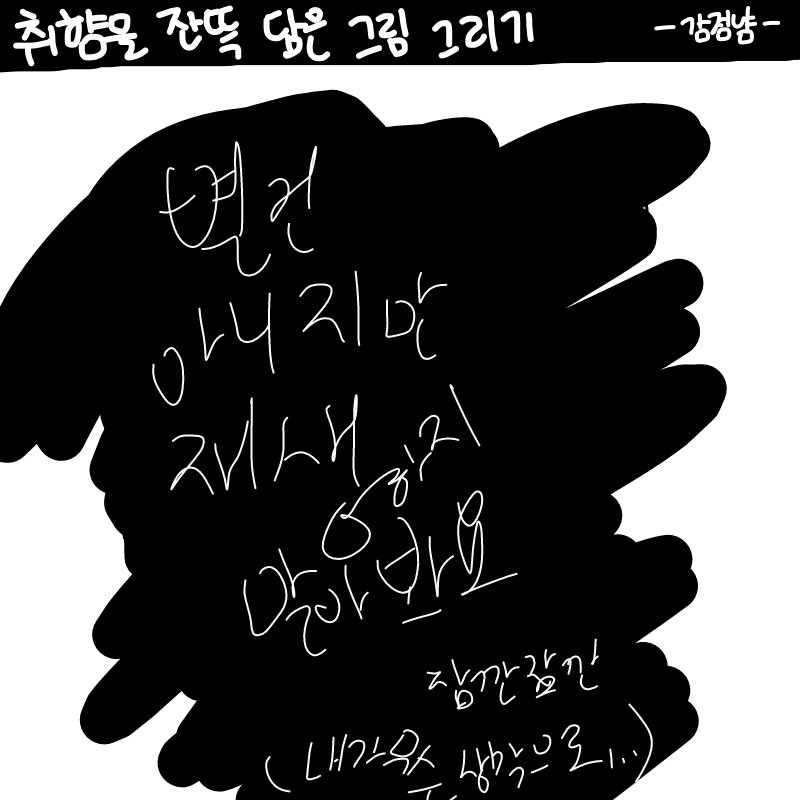 취향물 잔뜩 담은 그림 그리기
-감정냠-
별건
아니지만
재생하지
말아봐요
잠깐잠깐
(내가 생각으로...)